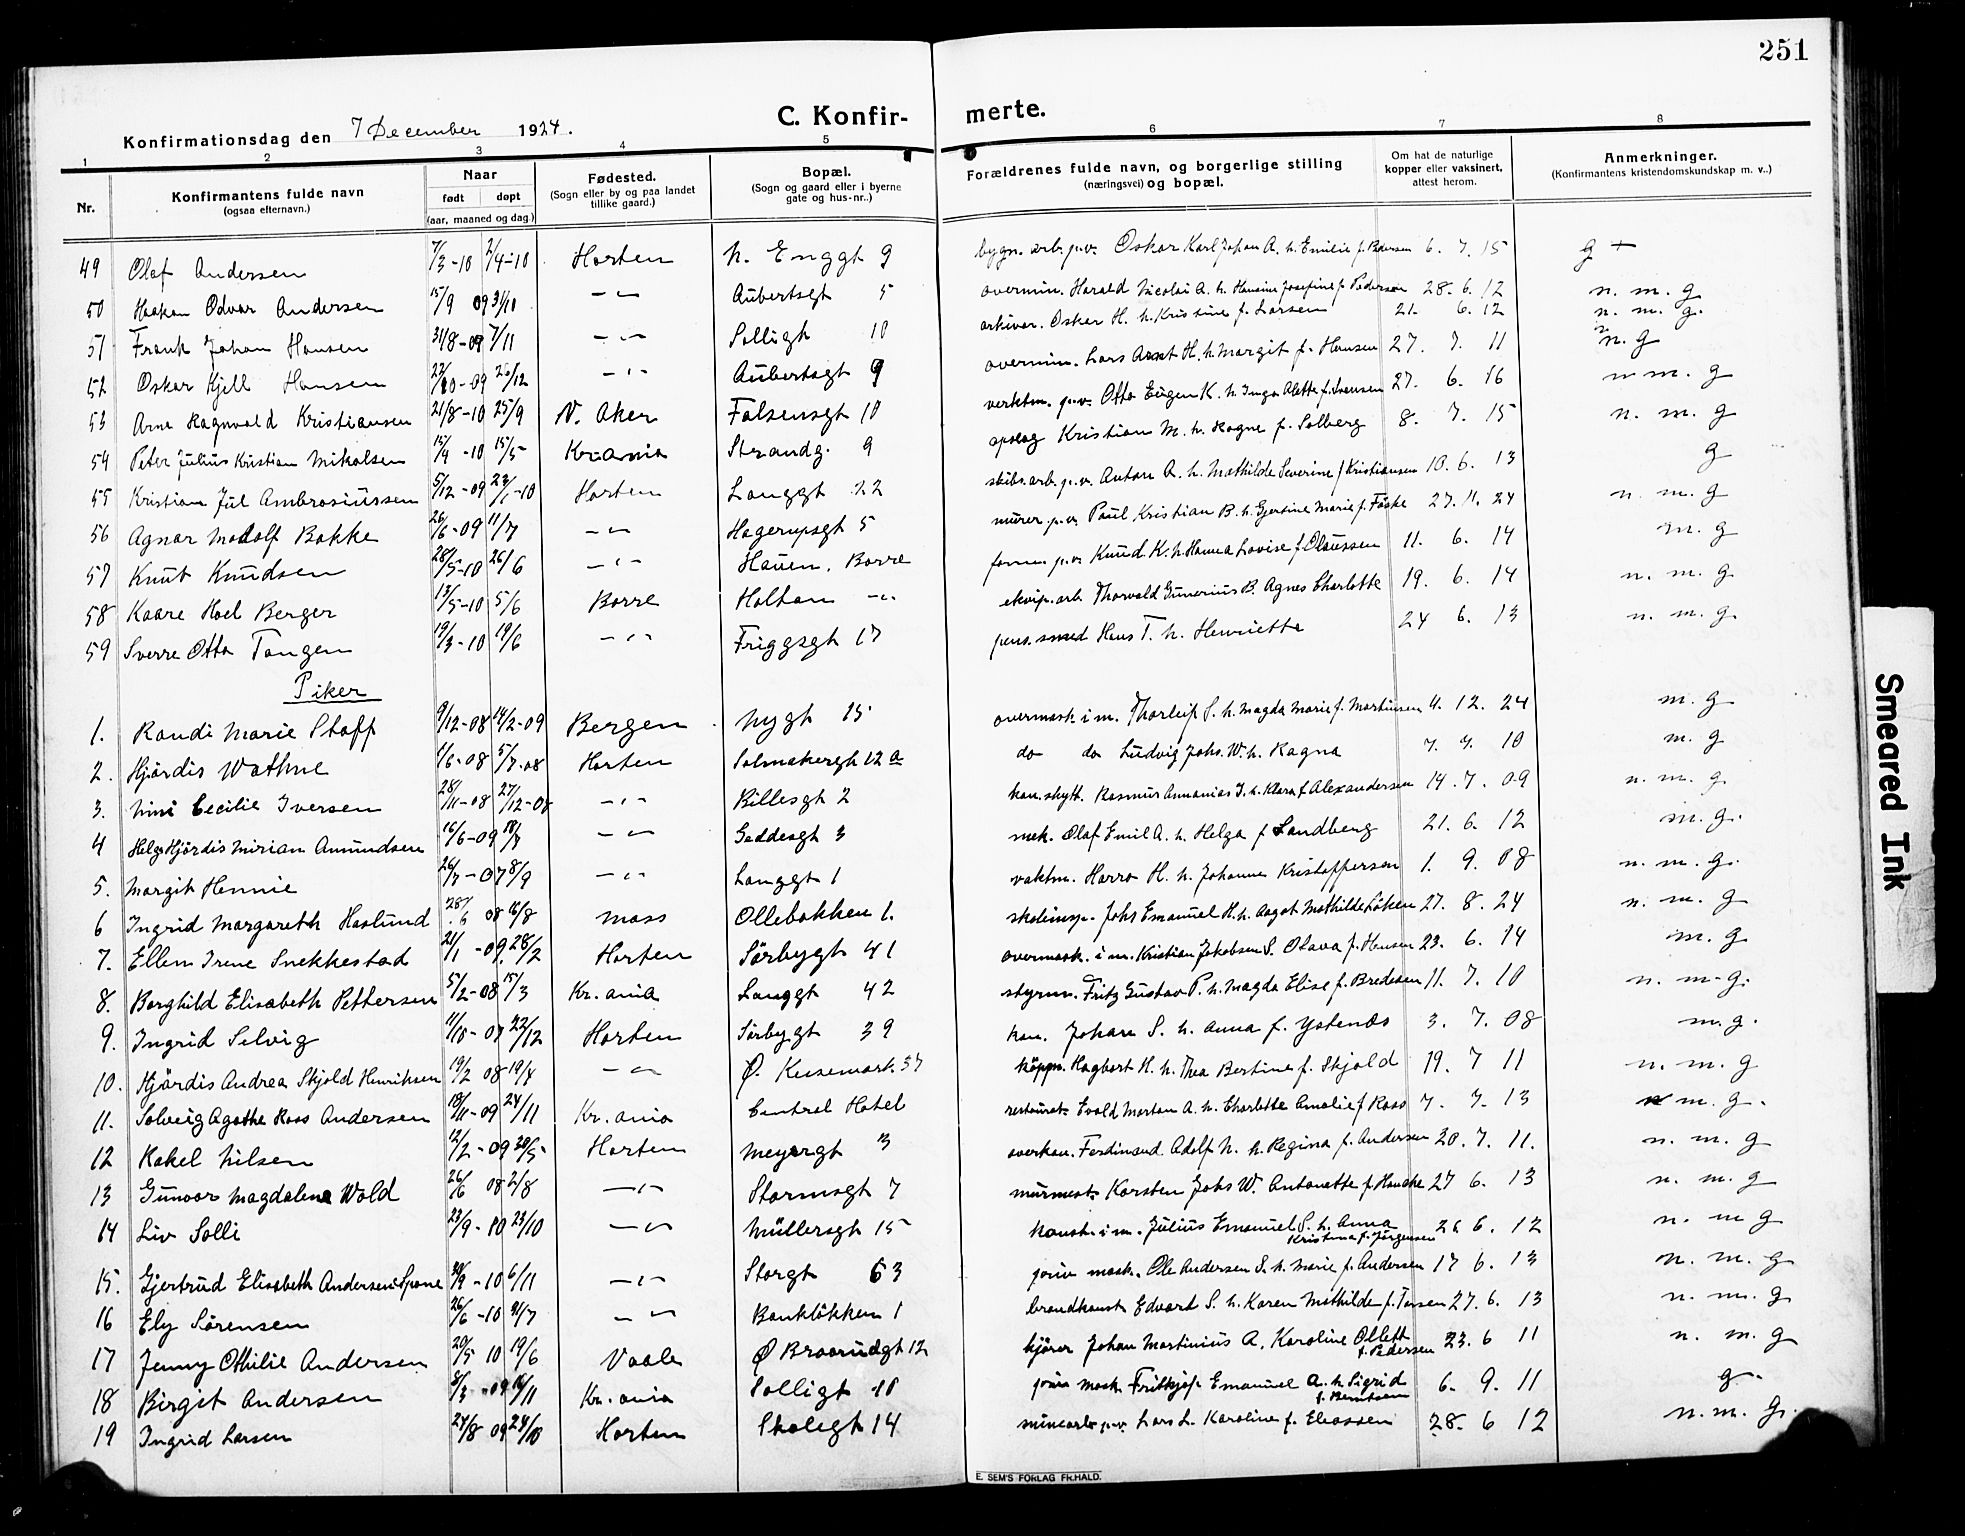 251
C. Konfir- merte.
Konfirmationsdag den 7 December 1924.
1 2 3 4 5 6 7 8
Nr. Konfirmantens fulde navn (ogsaa efternavn.) Naar født døpt (aar, maaned og dag.) Fødested. (Sogn eller by og paa landet tillike gaard.) Bopæl. (Sogn og gaard eller i byerne gate og hus-nr..) Forældrenes fulde navn, og borgerlige stilling (næringsvei) og bopæl. Om hat de naturlige kopper eller vaksinert, attest herom. Anmerkninger. (Konfirmantens kristendomskundskap m. v..)
49 Olaf Andersen 7/3-10 2/4-10 Horten N. Enggt 9 bygn. arb. p.v. Oskar Karl Johan A. h. Emilie f. Pedersen 6. 7. 15 g +
50 Haakon Odvar Andersen 15/9 09 31/10 -"- Aubertsgt 5 overmin. Harald Nicolai A. h. Hansine Josefine f. Pedersen 28. 6. 12 n. m. g
51 Frank Johan Hansen 31/8-09 7/11 -"- Solligt 10 arkivar. Oskar H. h. Kristine f. Larsen 21. 6. 12 n. m. g.
52 Oskar Kjell Hansen 22/10-09 26/12 -"- Aubertsgt 9 overmin. Lars Arnt H. h. Margit f. Hansen 27. 7. 11 n. g
53 Arne Ragnvald Kristiansen 21/8-10 25/9 V. Aker Falsensgt 10 verktm. p.v. Otto Eugen K. h. Inga Alette f. Svensen 27. 6. 16 n m. g
54 Peter Julius Kristian Mikalsen 15/4-10 15/5 Kr.ania Strandg. 9 Kristian M. h. Ragna f. Solberg 8. 7. 15 n. m. g
55 Kristian Jul Ambrosiussen 5/12-09 23/1-10 Horten Langgt 22 skibs.arb. p.v. Anton A. h. Mathilde Severine f Kristiansen 10. 6. 13 g
56 Agnar Modolf Bakke 26/6-09 11/7 -"- Hagerupsgt 5 murer p.v. Paul Kristian B. h. Gjertine Marie f. Fåske 27. 11. 24 n. m. g
57 Knut Knudsen 28/5-10 26/6 -"- Hauen. Borre p.v. Knud K. h. Hanna Lovise f. Olaussen 11. 6. 14 m. g
58 Kaare Hoel Berger 13/5-10 5/6 Borre Holtan -"- ekvip. arb. Thorvald Gunerius B. Agnes Charlotte 19. 6. 14 n. m. g
59 Sverre Otto Tangen 19/3-10 19/6 -"- Friggsgt 17 pens. smed Hans T. h. Henriette 24 6. 13 n. m. g.
Piker
1. Randi Marie Staff 9/12-08 14/2-09 Bergen Nygt 15 overmask. i m. Thorleif S. h. Magda Marie f. Martinsen 4. 12. 24 m. g
2. Hjördis Wathne 1/6-08 5/7-08 Horten Salmakergt 12 a do do Ludvig Johs. W. h. Ragna 7. 7. 10 m. g
3. Nini Cecilie Iversen 28/11-08 27/12-08 -"- Billesgt 2 kan. skytt. Rasmus Annanias I. h. Klara f Alexandersen 14. 7. 09 n. m. g
4 Helga Hjördis Mirian Amundsen 16/6-09 18/7 -"- Geddesgt 3 mek. Olaf Emil A. h. Helga f Sandberg 21. 6. 12 m. g.
5. Margit Hennie 26/7-07 8/9 -"- Langgt 1 vaktm. Harro H. h. Johanne Kristoffersen 1. 9. 08 n. m. g.
6 Ingrid Margareth Haslund 28/6 08 16/8 Moss Ollebakken 1. skoleinsp. Johs Emanuel H. h. Aagot Mathilde Löken 27. 8. 24 n. m. g
7. Ellen Irene Snekkestad 21/1-09. 28/2 Horten Sörbygt 41 overmask. i m. Kristian Jakobsen S. Olava f. Hansen 23. 6. 14 m. g
8. Borghild Elisabeth Pettersen 5/2-08 15/3 Kr.ania Langgt 42 styrm. Fritz Gustav P. h. Magda Elise f. Bredesen 11. 7. 10 n. m-g.
9. Ingrid Selvig 11/10-07 22/12 Horten Sörbygt 39 kan. Johan S. h. Anna f. Ystenæs 3. 7. 08 m.g.
10. Hjördis Andrea Skjold Henriksen 19/2 08 19/4 -"- Ø. Keisemark. 37 köppm. Hagbart H. h. Thea Bertine f. Skjold 19. 7 11 n. m. g
11. Solveig Agathe Roos Andersen 18/11-09 24/11 Kr.ania Central Hotel restauratr. Evald Morton A. h. Charlotte Amalie f Roos 7. 7. 13 m. g.
12 Rakel Nilsen 12/2-09 20/5 Horten Meyergt 13 overkan. Ferdinand Adolf N. h. Regina f. Andersen 20. 7. 11. n. m. g
13 Gunvor Magdalena Wold 26/6 08 2/8 -"- Stormsgt 7 murmest. Karsten Johs W. Antonette f. Hauche 27 6. 13 n. m. g
14 Liv Solli 23/9-10 23/10 -"- Müllersgt 15 konst. i m. Julius Emanuel S. h. Anna Kristina f. Jörgensen 26 6. 12 n. m g
15. Gjertrud Elisabeth Andersen Spone 30/9-10 6/11 -"- Storgt 63 mask. Ole Andersen S. h. Marie f. Andersen 17 6. 13 n. m. g
16 Ely Sörensen 26/6-10 31/7 -"- Banklökken 1 brandkonst. Edvard S. h. Karen Mathilde f. Tersen 27. 6. 13 n. m. g
17 Jenny Othilie Andersen 20/5 10 19/6 Vaale Ø Braarudgt 12 kjörer Johan Martinius A. Karoline Olette f. Pedersen 23. 6 11 n. m. g
18 Birgit Andersen 3/3-09 14/11 Kr.ania Solligt 10 mask. Frithjof Emanuel A. h. Sigrid f. Berntsen 6. 9. 11 g.
19 Ingrid Larsen 24/8 09 24/10 Horten Skolegt 14 minearb. p.v. Lars L. Karoline f. Eliassen 28. 6 12 n. m. g.
E. SEM'S FORLAG FR.HALD.
Smeared Ink